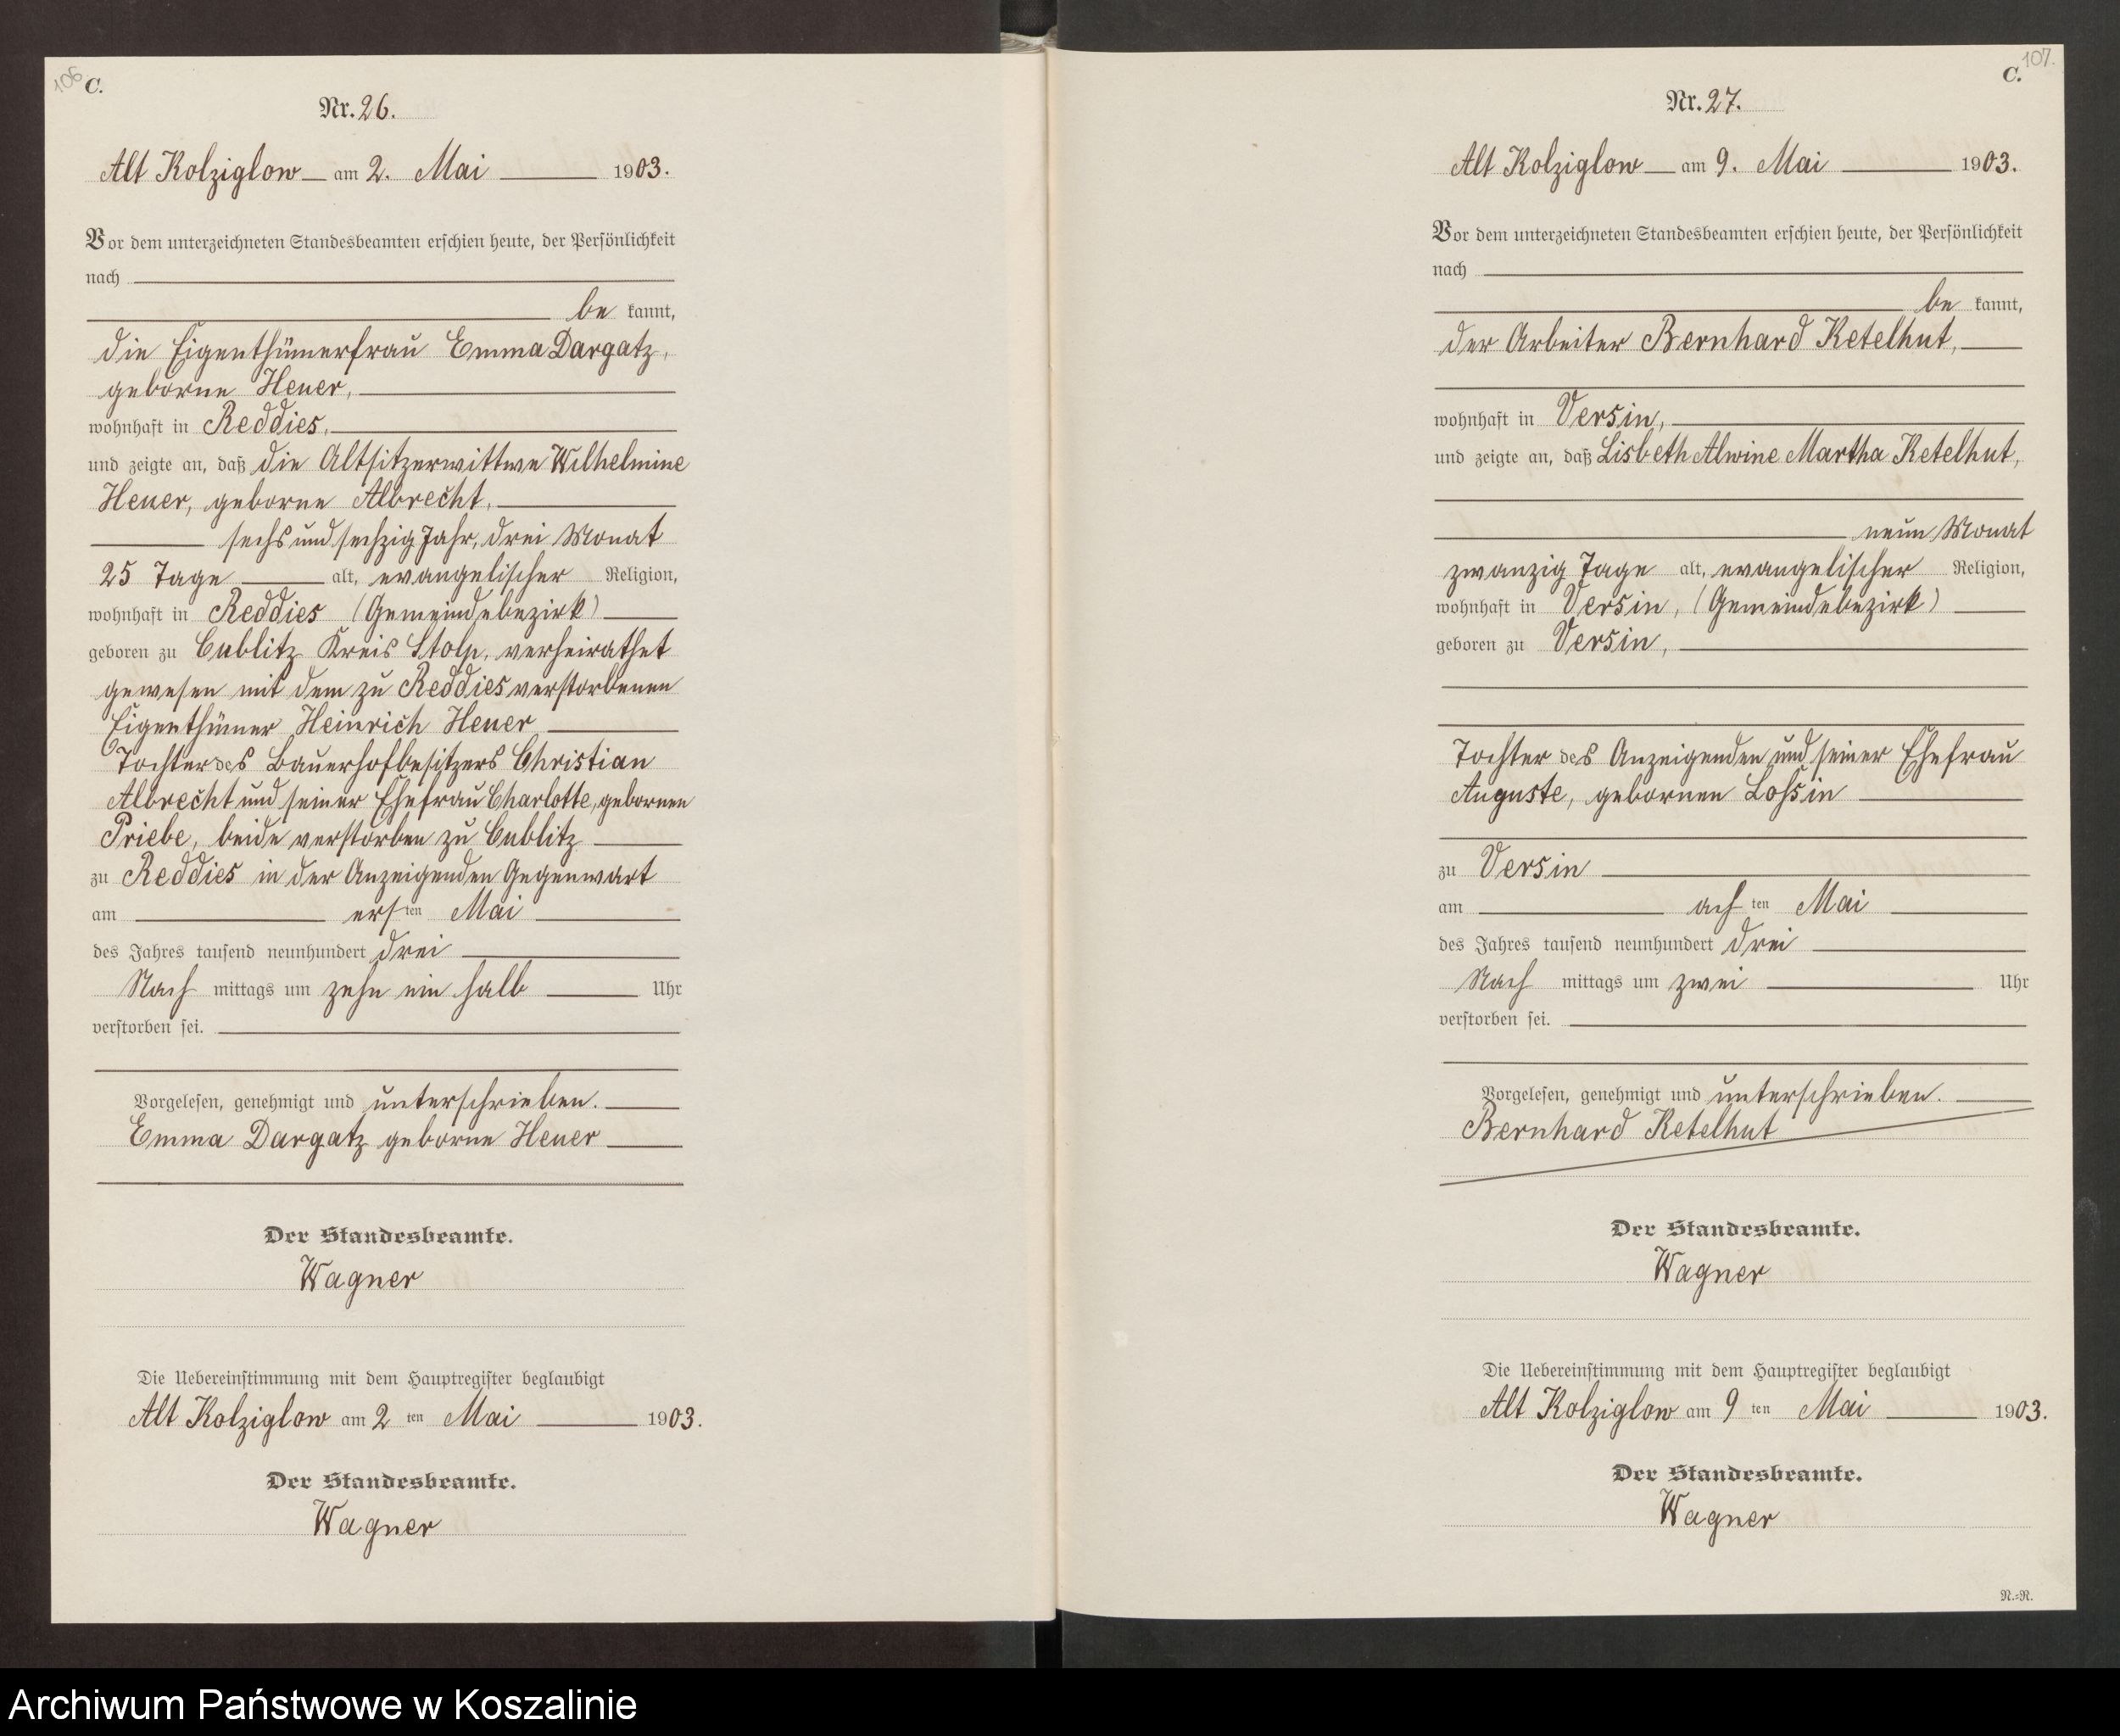 106
C.
Nr. 26.
Alt Kolziglow am 2. Mai 1903.
Vor dem unterzeichneten Standesbeamten erschien heute, der Persönlichkeit
nach
be kannt,
die Eigenthümerfrau Emma Dargatz,
geborne Heuer,
wohnhaft in Reddies,
und zeigte an, daß die Altsitzerwittwe Wilhelmine
Heuer, geborne Albrecht,
sechs und sechzig Jahr, drei Monat
25 Tage alt, evangelischer Religion,
wohnhaft in Reddies (Gemeindebezirk)
geboren zu Cublitz Kreis Stolp, verheirathet
gewesen mit dem zu Reddies verstorbenen
Eigenthümer Heinrich Heuer
Tochter des Bauerhofbesitzers Christian
Albrecht und seiner Ehefrau Charlotte, gebornen
Priebe, beide verstorben zu Cublitz
zu Reddies in der Anzeigenden Gegenwart
am ersten Mai
des Jahres tausend neunhundert drei
Nach mittags um zehn ein halb Uhr
verstorben sei.
Vorgelesen, genehmigt und unterschrieben.
Emma Dargatz geborne Heuer
Der Standesbeamte.
Wagner
Die Uebereinstimmung mit dem Hauptregister beglaubigt
Alt Kolziglow am 2 ten Mai 1903.
Der Standesbeamte.
Wagner
107.
C.
Nr. 27.
Alt Kolziglow am 9. Mai 1903.
Vor dem unterzeichneten Standesbeamten erschien heute, der Persönlichkeit
nach
be kannt,
der Arbeiter Bernhard Ketelhut,
wohnhaft in Versin,
und zeigte an, daß Lisbeth Alwine Martha Ketelhut,
neun Monat
zwanzig Tage alt, evangelischer Religion,
wohnhaft in Versin, (Gemeindebezirk)
geboren zu Versin,
Tochter des Anzeigenden und seiner Ehefrau
Auguste, gebornen Loßin
zu Versin
am achten Mai
des Jahres tausend neunhundert drei
Nach mittags um zwei Uhr
verstorben sei.
Vorgelesen, genehmigt und unterschrieben.
Bernhard Ketelhut
Der Standesbeamte.
Wagner
Die Uebereinstimmung mit dem Hauptregister beglaubigt
Alt Kolziglow am 9 ten Mai 1903.
Der Standesbeamte.
Wagner
N.=N.
Archiwum Państwowe w Koszalinie